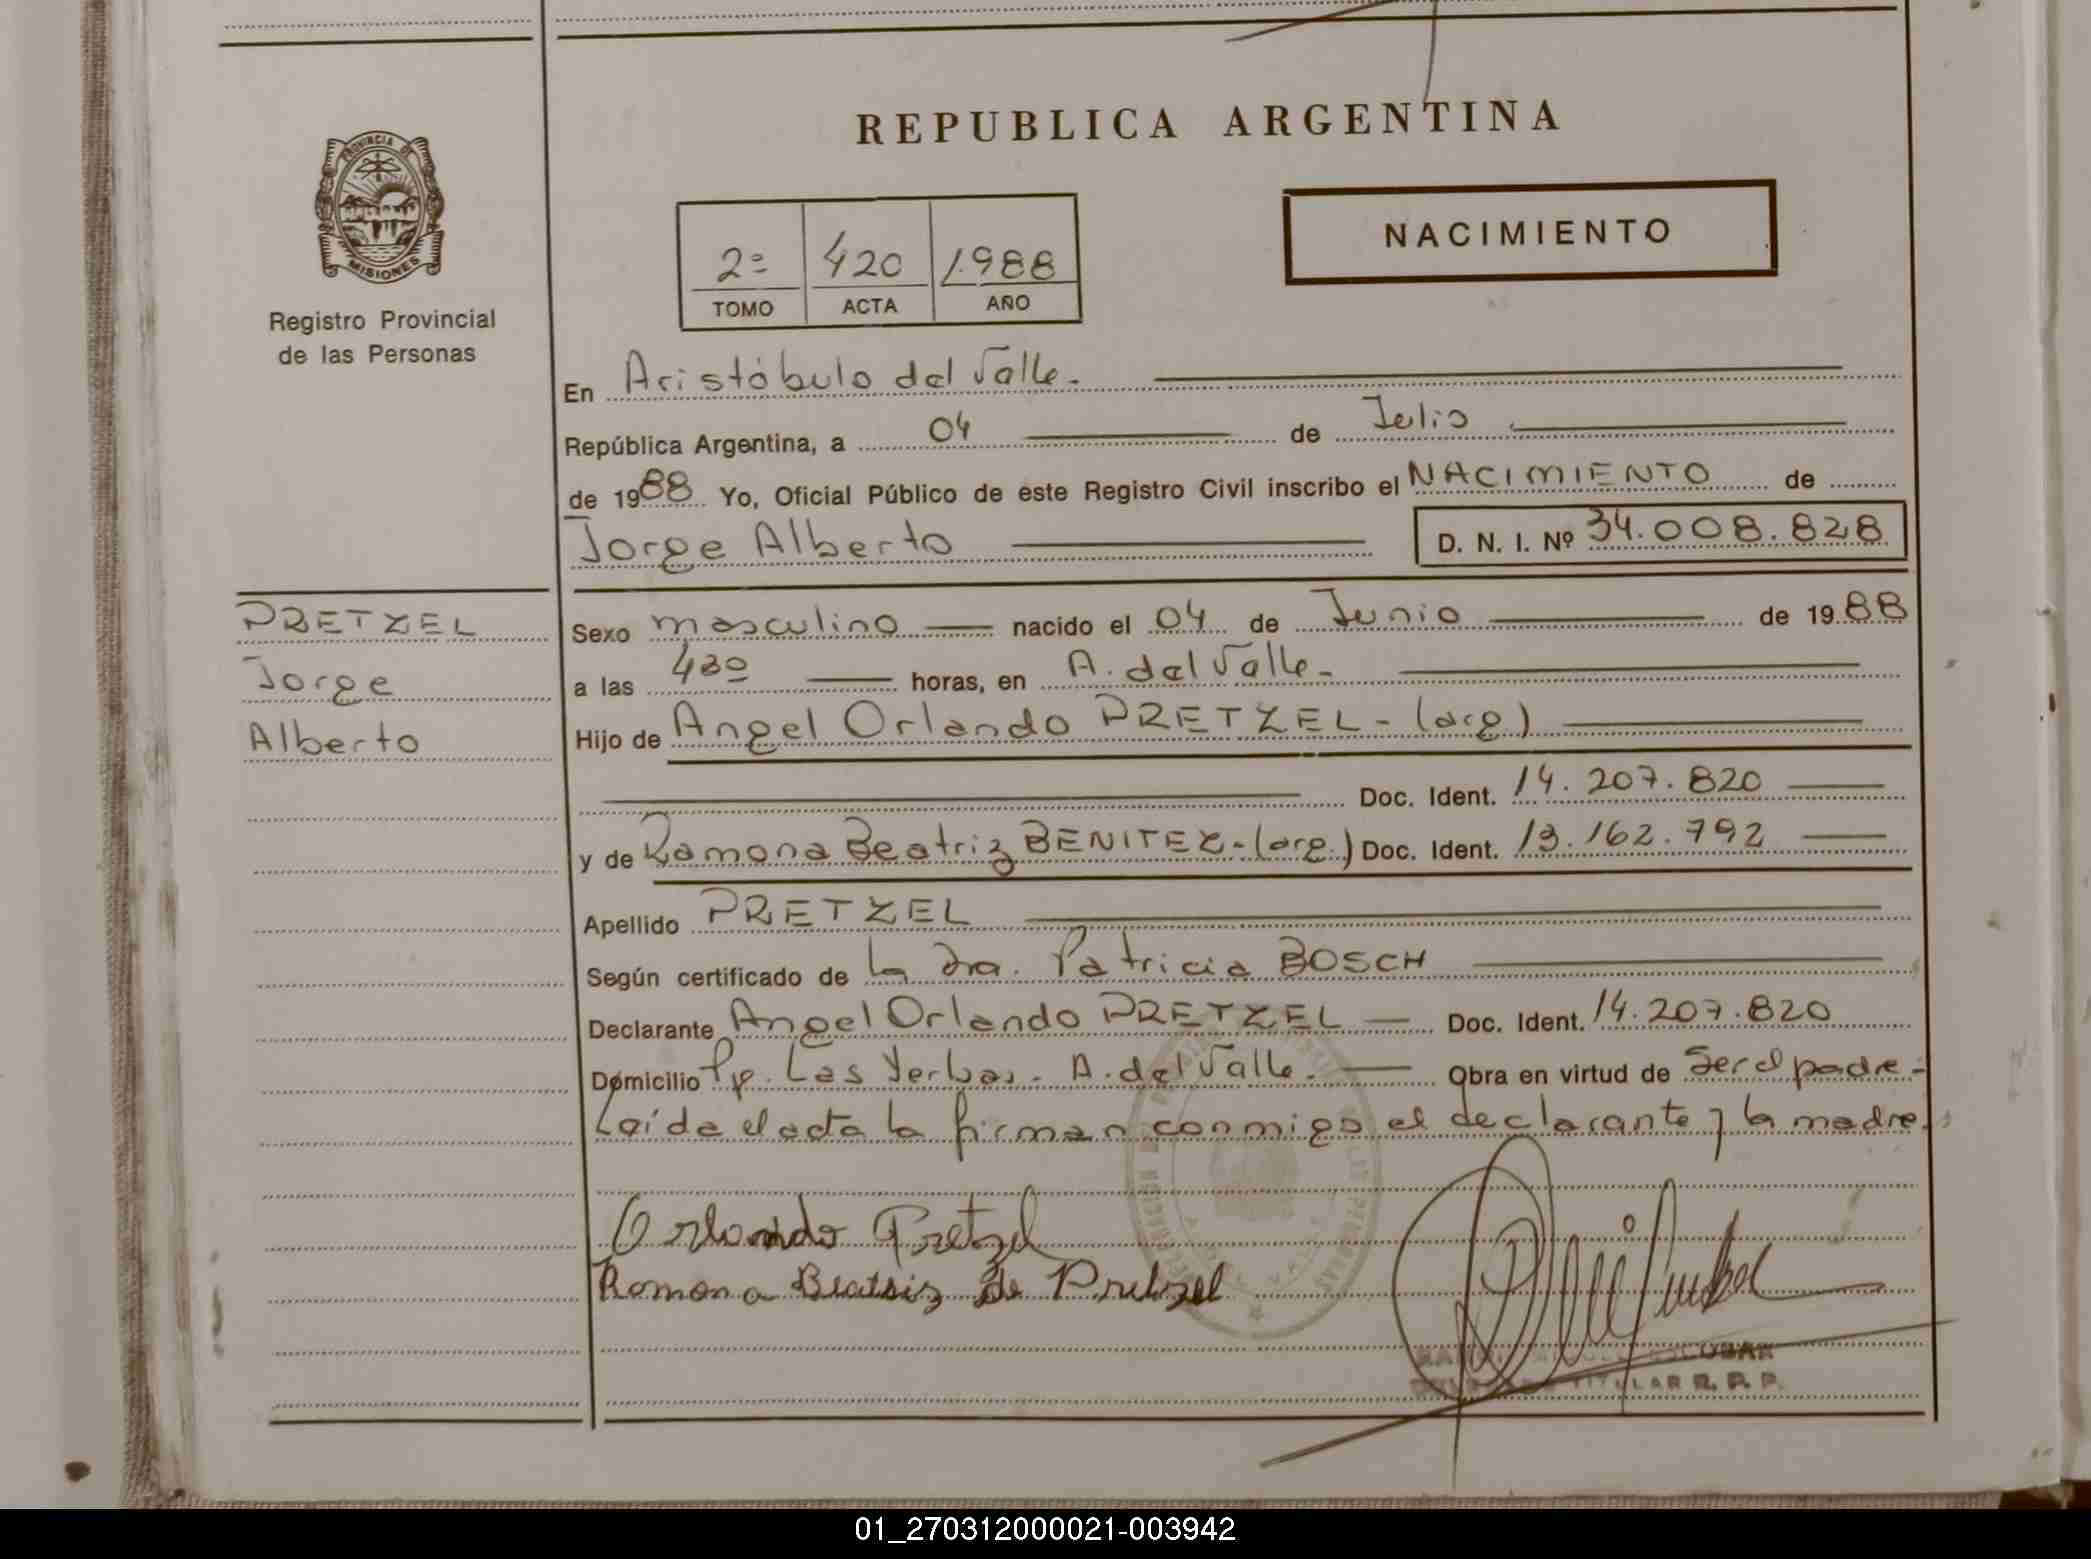 PROVINCIA DE
MISIONES
Registro Provincial
de las Personas
REPUBLICA ARGENTINA
NACIMIENTO
2º 420 1988
TOMO ACTA AÑO
En Aristóbulo del Valle.
República Argentina, a 04 de Julio
de 1988 Yo, Oficial Público de este Registro Civil inscribo el NACIMIENTO de
Jorge Alberto D. N. I. Nº 34.008.828
PRETZEL
Jorge
Alberto
Sexo masculino nacido el 04 de Junio de 1988
a las 430 horas, en A. del Valle.
Hijo de Angel Orlando PRETZEL - (arg)
Doc. Ident. 14.207.820
y de Ramona Beatriz BENITEZ - (arg.) Doc. Ident. 13.162.792
Apellido PRETZEL
Según certificado de la Dra. Patricia BOSCH
Declarante Angel Orlando PRETZEL Doc. Ident. 14.207.820
Domicilio Pp. Las Yerbas. A. del Valle. Obra en virtud de Ser el padre -
Leída el acta la firman conmigo el declarante y la madre.
Orlando Pretzel
Romona Beatriz de Pretzel
ESCOBAR
TITULAR R. P. P.
01_270312000021-003942